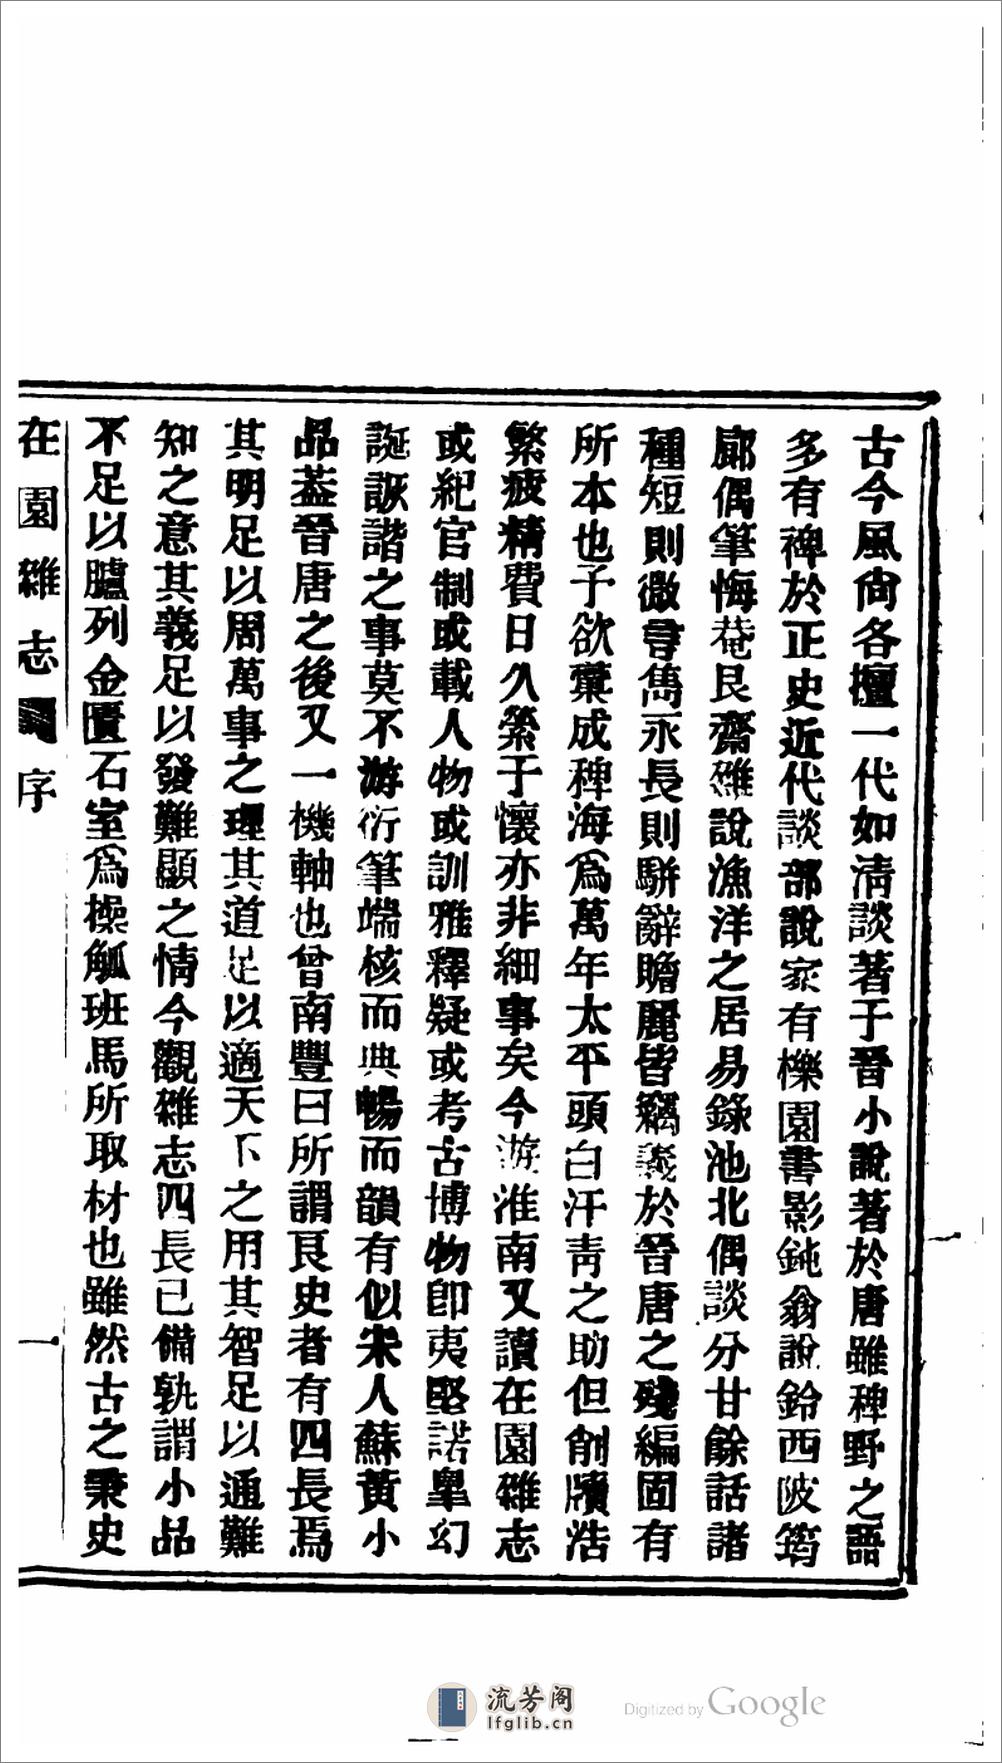 古今風尙各擅一代如淸談著于晉小說著於唐雖稗野之語
多有裨於正史近代談部說家有櫟園書影鈍翁說鈴西陂筠
廊偶筆悔菴艮齋雜說漁洋之居易錄池北偶談分甘餘話諸
種短則微言雋永長則駢辭贍麗皆竊義於晉唐之殘編固有
所本也予欲彙成稗海為萬年太平頭白汗靑之助但削牘浩
繁疲精費日久縈于懷亦非細事矣今游淮南又讀在園雜志
或紀官制或載人物或訓雅釋疑或考古博物卽夷堅諾臯幻
誕詼諧之事莫不游衍筆端核而典暢而韻有似宋人蘇黃小
品葢晉唐之後又一機軸也曾南豐曰所謂良史者有四長焉
其明足以周萬事之理其道足以適天下之用其智足以通難
知之意其義足以發難顯之情今觀雜志四長已備孰謂小品
不足以臚列金匱石室為操觚班馬所取材也雖然古之秉史
在園雜志 序 一
流芳阁
lfglib.cn
Digitized by Google